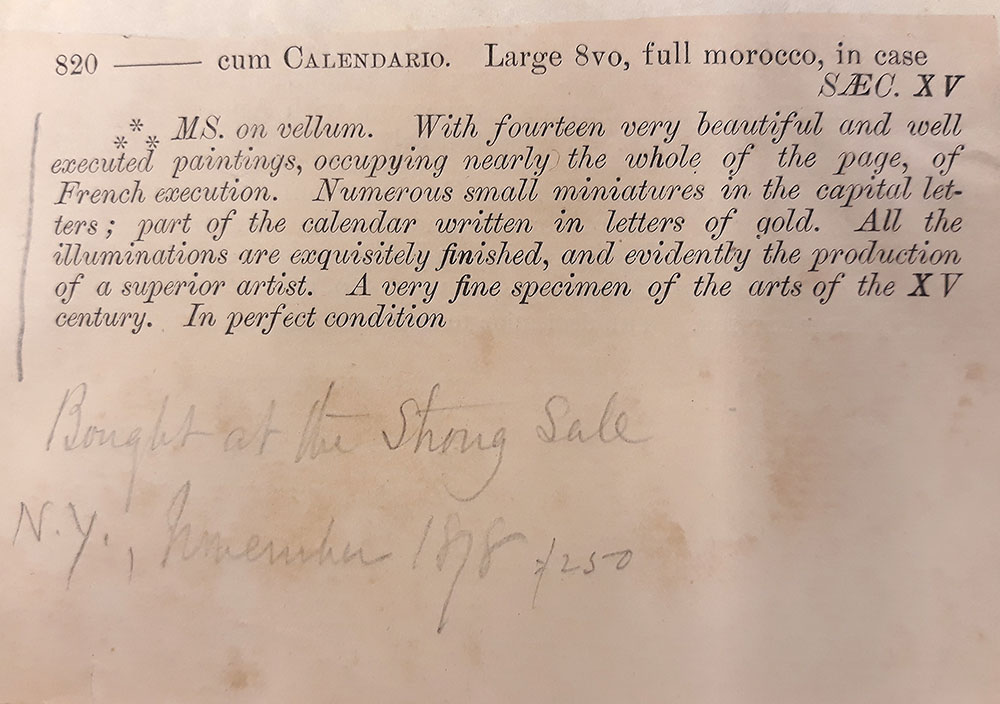 820 ——— cum CALENDARIO. Large 8vo, full morocco, in case
SÆC. XV
⁂ MS. on vellum. With fourteen very beautiful and well
executed paintings, occupying nearly the whole of the page, of
French execution. Numerous small miniatures in the capital let-
ters; part of the calendar written in letters of gold. All the
illuminations are exquisitely finished, and evidently the production
of a superior artist. A very fine specimen of the arts of the XV
century. In perfect condition
Bought at the Strong Sale
N.Y., November 1878 $250